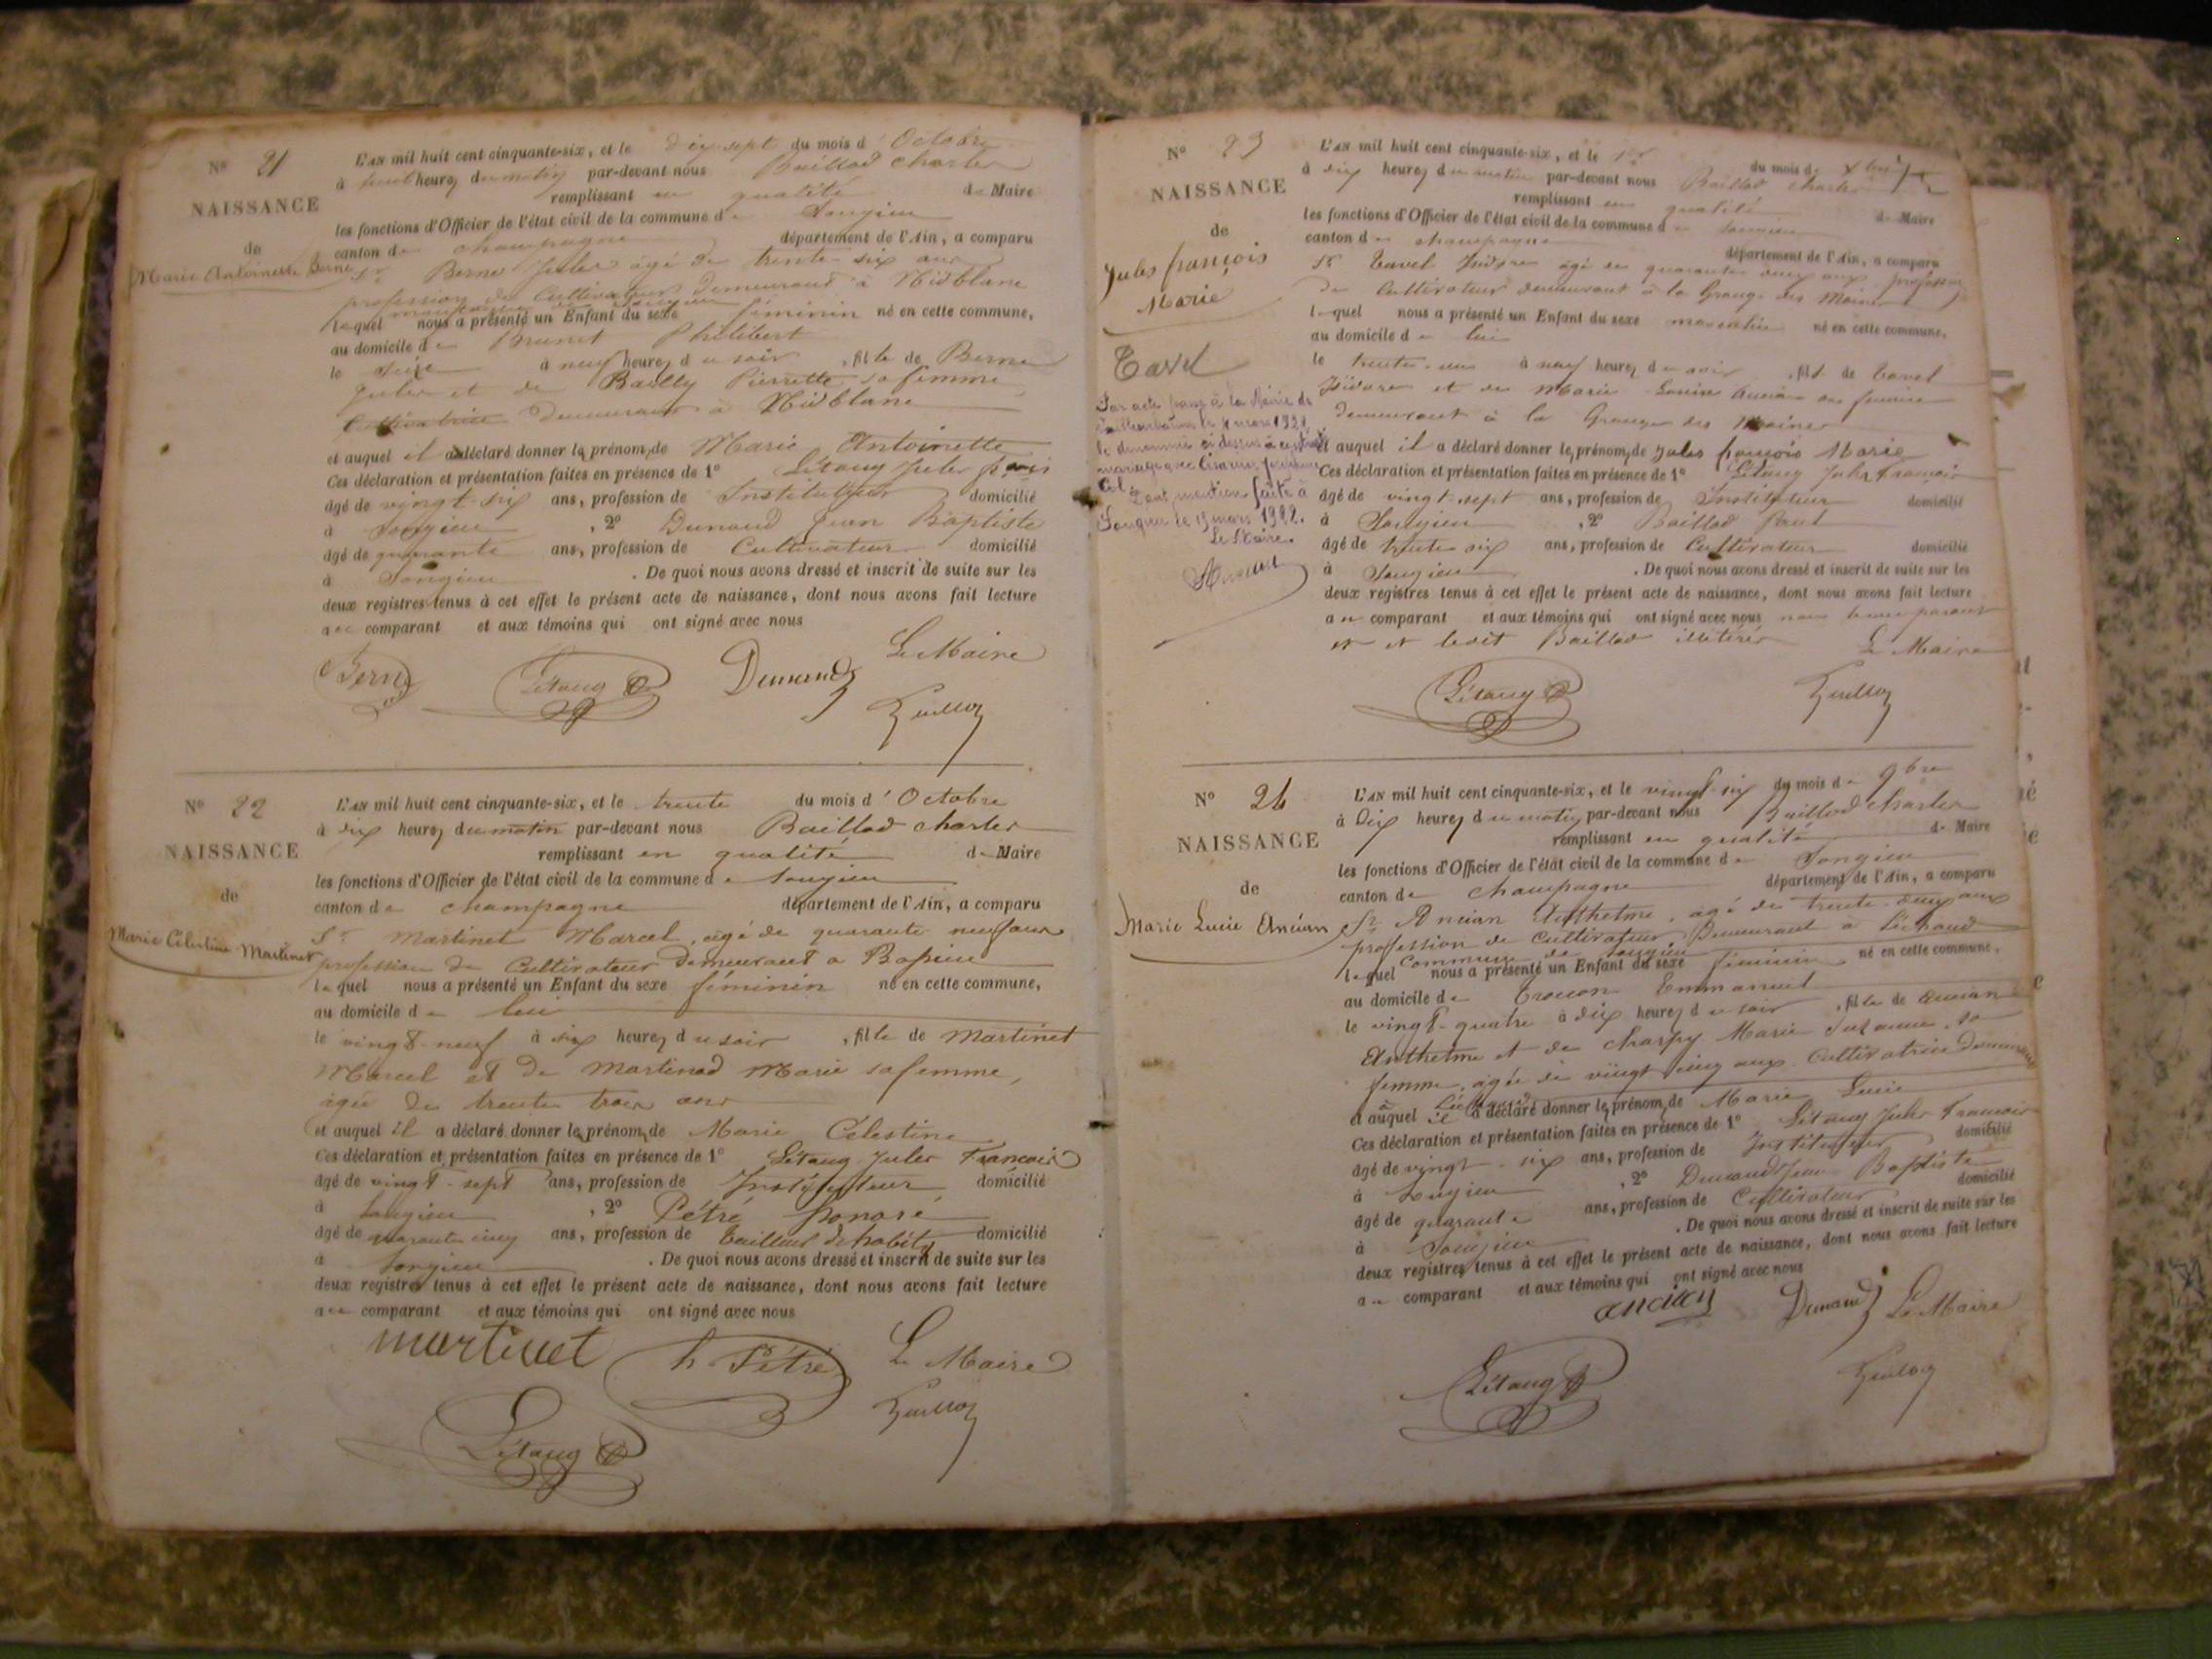 N° 21
NAISSANCE
de
Marie Antoinette Berne
L'AN mil huit cent cinquante-six, et le dix sept du mois d'Octobre
à huit heures du matin par-devant nous Baillod Charles
remplissant en qualité de Maire
les fonctions d'Officier de l'état civil de la commune de Songieu
canton de Champagne département de l'Ain, a comparu
Sr Berne Jules âgé de trente-six ans
profession de Cultivateur demeurant à Nidblanc
lequel nous a présenté un Enfant du sexe féminin né en cette commune,
au domicile de Brunet Philibert
le seize à neuf heures du soir, fille de Berne
Jules et de Bailly Pierrette sa femme
Cultivatrice demeurant à Nidblanc
et auquel il a déclaré donner les prénoms de Marie Antoinette
Ces déclaration et présentation faites en présence de 1° Létang Jules
âgé de vingt-six ans, profession de Instituteur domicilié
à Songieu, 2° Dunand Jean Baptiste
âgé de quarante ans, profession de Cultivateur domicilié
à Songieu. De quoi nous avons dressé et inscrit de suite sur les
deux registres tenus à cet effet le présent acte de naissance, dont nous avons fait lecture
au comparant et aux témoins qui ont signé avec nous
Le Maire
Berne Létang Dunand
N° 22
NAISSANCE
de
Marie Célestine Martinet
L'AN mil huit cent cinquante-six, et le trente du mois d'Octobre
à dix heures du matin par-devant nous Baillod Charles
remplissant en qualité de Maire
les fonctions d'Officier de l'état civil de la commune de Songieu
canton de Champagne département de l'Ain, a comparu
Sr Martinet Marcel, âgé de quarante neuf ans
profession de Cultivateur demeurant a Bassieu
lequel nous a présenté un Enfant du sexe féminin né en cette commune,
au domicile de lui
le vingt-neuf à six heures du soir, fille de Martinet
Marcel et de Martinod Marie sa femme,
âgée de trente trois ans
et auquel il a déclaré donner les prénoms de Marie Célestine
Ces déclaration et présentation faites en présence de 1° Létang Jules François
âgé de vingt-sept ans, profession de Instituteur domicilié
à Songieu, 2° Pétré honoré
âgé de quarante cinq ans, profession de tailleur d'habits domicilié
à Songieu. De quoi nous avons dressé et inscrit de suite sur les
deux registres tenus à cet effet le présent acte de naissance, dont nous avons fait lecture
au comparant et aux témoins qui ont signé avec nous
martinet h Pétré Le Maire
Létang
N° 23
NAISSANCE
de
Jules françois
Marie
Tavel
Par acte passé à la Mairie de
le mars
le dénommé ci dessus a contracté
mariage avec
Dont mention faite à
Songieu le mars 1922.
Le Maire.
L'AN mil huit cent cinquante-six, et le 1er du mois de
à dix heures du matin par-devant nous Baillod Charles
remplissant en qualité de Maire
les fonctions d'Officier de l'état civil de la commune de Songieu
canton de Champagne département de l'Ain, a comparu
Sr Tavel Isidore âgé de quarante deux ans profession
de Cultivateur demeurant à la Grange des Moines
lequel nous a présenté un Enfant du sexe masculin né en cette commune,
au domicile de lui
le trente-un à neuf heures du soir, fils de Tavel
Isidore et de Marie Louise Ancian sa femme
demeurant à la Grange des Moines
et auquel il a déclaré donner les prénoms de Jules françois Marie
Ces déclaration et présentation faites en présence de 1° Létang Jules François
âgé de vingt-sept ans, profession de Instituteur domicilié
à Songieu, 2° Baillod Paul
âgé de trente six ans, profession de Cultivateur domicilié
à Songieu. De quoi nous avons dressé et inscrit de suite sur les
deux registres tenus à cet effet le présent acte de naissance, dont nous avons fait lecture
au comparant et aux témoins qui ont signé avec nous
et ledit Baillod
Le Maire
Létang
N° 24
NAISSANCE
de
Marie Lucie Ancian
L'AN mil huit cent cinquante-six, et le vingt-six du mois de 9bre
à dix heures du matin par-devant nous Baillod Charles
remplissant en qualité de Maire
les fonctions d'Officier de l'état civil de la commune de Songieu
canton de Champagne département de l'Ain, a comparu
Sr Ancian Anthelme, âgé de trente-deux ans
profession de Cultivateur Demeurant à Lachaud
commune de Songieu
lequel nous a présenté un Enfant du sexe féminin né en cette commune,
au domicile de Emmanuel
le vingt-quatre à dix heures du soir, fille de Ancian
Anthelme et de Charpy Marie Suzanne, sa
femme, âgée de vingt cinq ans Cultivatrice demeurant
et auquel il a déclaré donner les prénoms de Marie Lucie
Ces déclaration et présentation faites en présence de 1° Létang Jules François
âgé de vingt-six ans, profession de Instituteur domicilié
à Songieu, 2° Dunand Jean Baptiste
âgé de quarante ans, profession de Cultivateur domicilié
à Songieu. De quoi nous avons dressé et inscrit de suite sur les
deux registres tenus à cet effet le présent acte de naissance, dont nous avons fait lecture
au comparant et aux témoins qui ont signé avec nous
ancian Dunand Le Maire
Létang